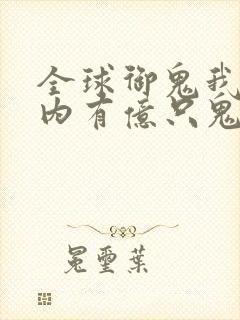 全球御鬼我
内有億只鬼
冕璽葉